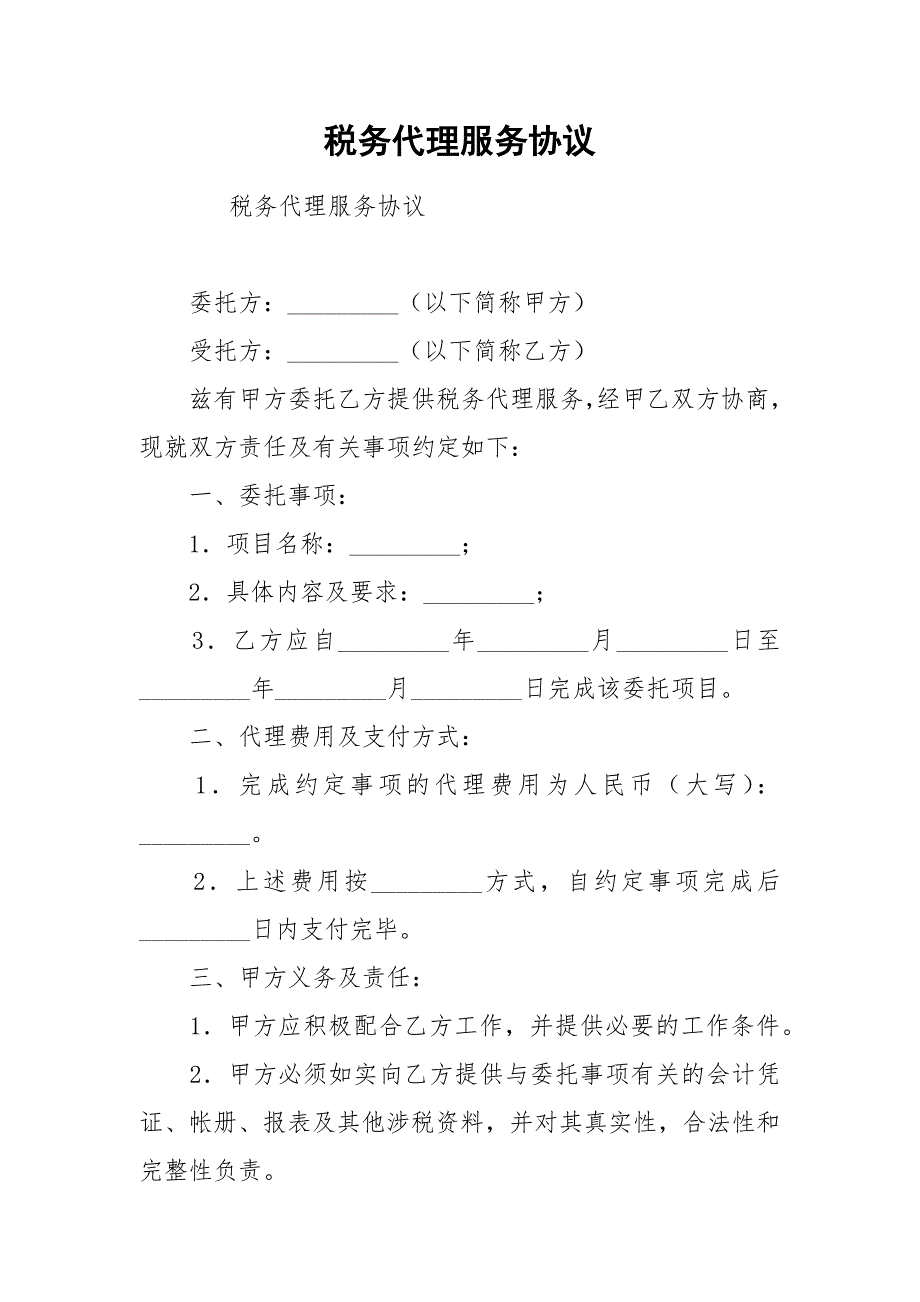 税务代理服务协议
税务代理服务协议
委托方：_________（以下简称甲方）
受托方：_________（以下简称乙方）
兹有甲方委托乙方提供税务代理服务，经甲乙双方协商，
现就双方责任及有关事项约定如下：
一、委托事项：
1．项目名称：_________；
2．具体内容及要求：_________；
3．乙方应自_________年_________月_________日至
_________年_________月_________日完成该委托项目。
二、代理费用及支付方式：
1．完成约定事项的代理费用为人民币（大写）：
_________。
2．上述费用按_________方式，自约定事项完成后
_________日内支付完毕。
三、甲方义务及责任：
1．甲方应积极配合乙方工作，并提供必要的工作条件。
2．甲方必须如实向乙方提供与委托事项有关的会计凭
证、帐册、报表及其他涉税资料，并对其真实性，合法性和
完整性负责。